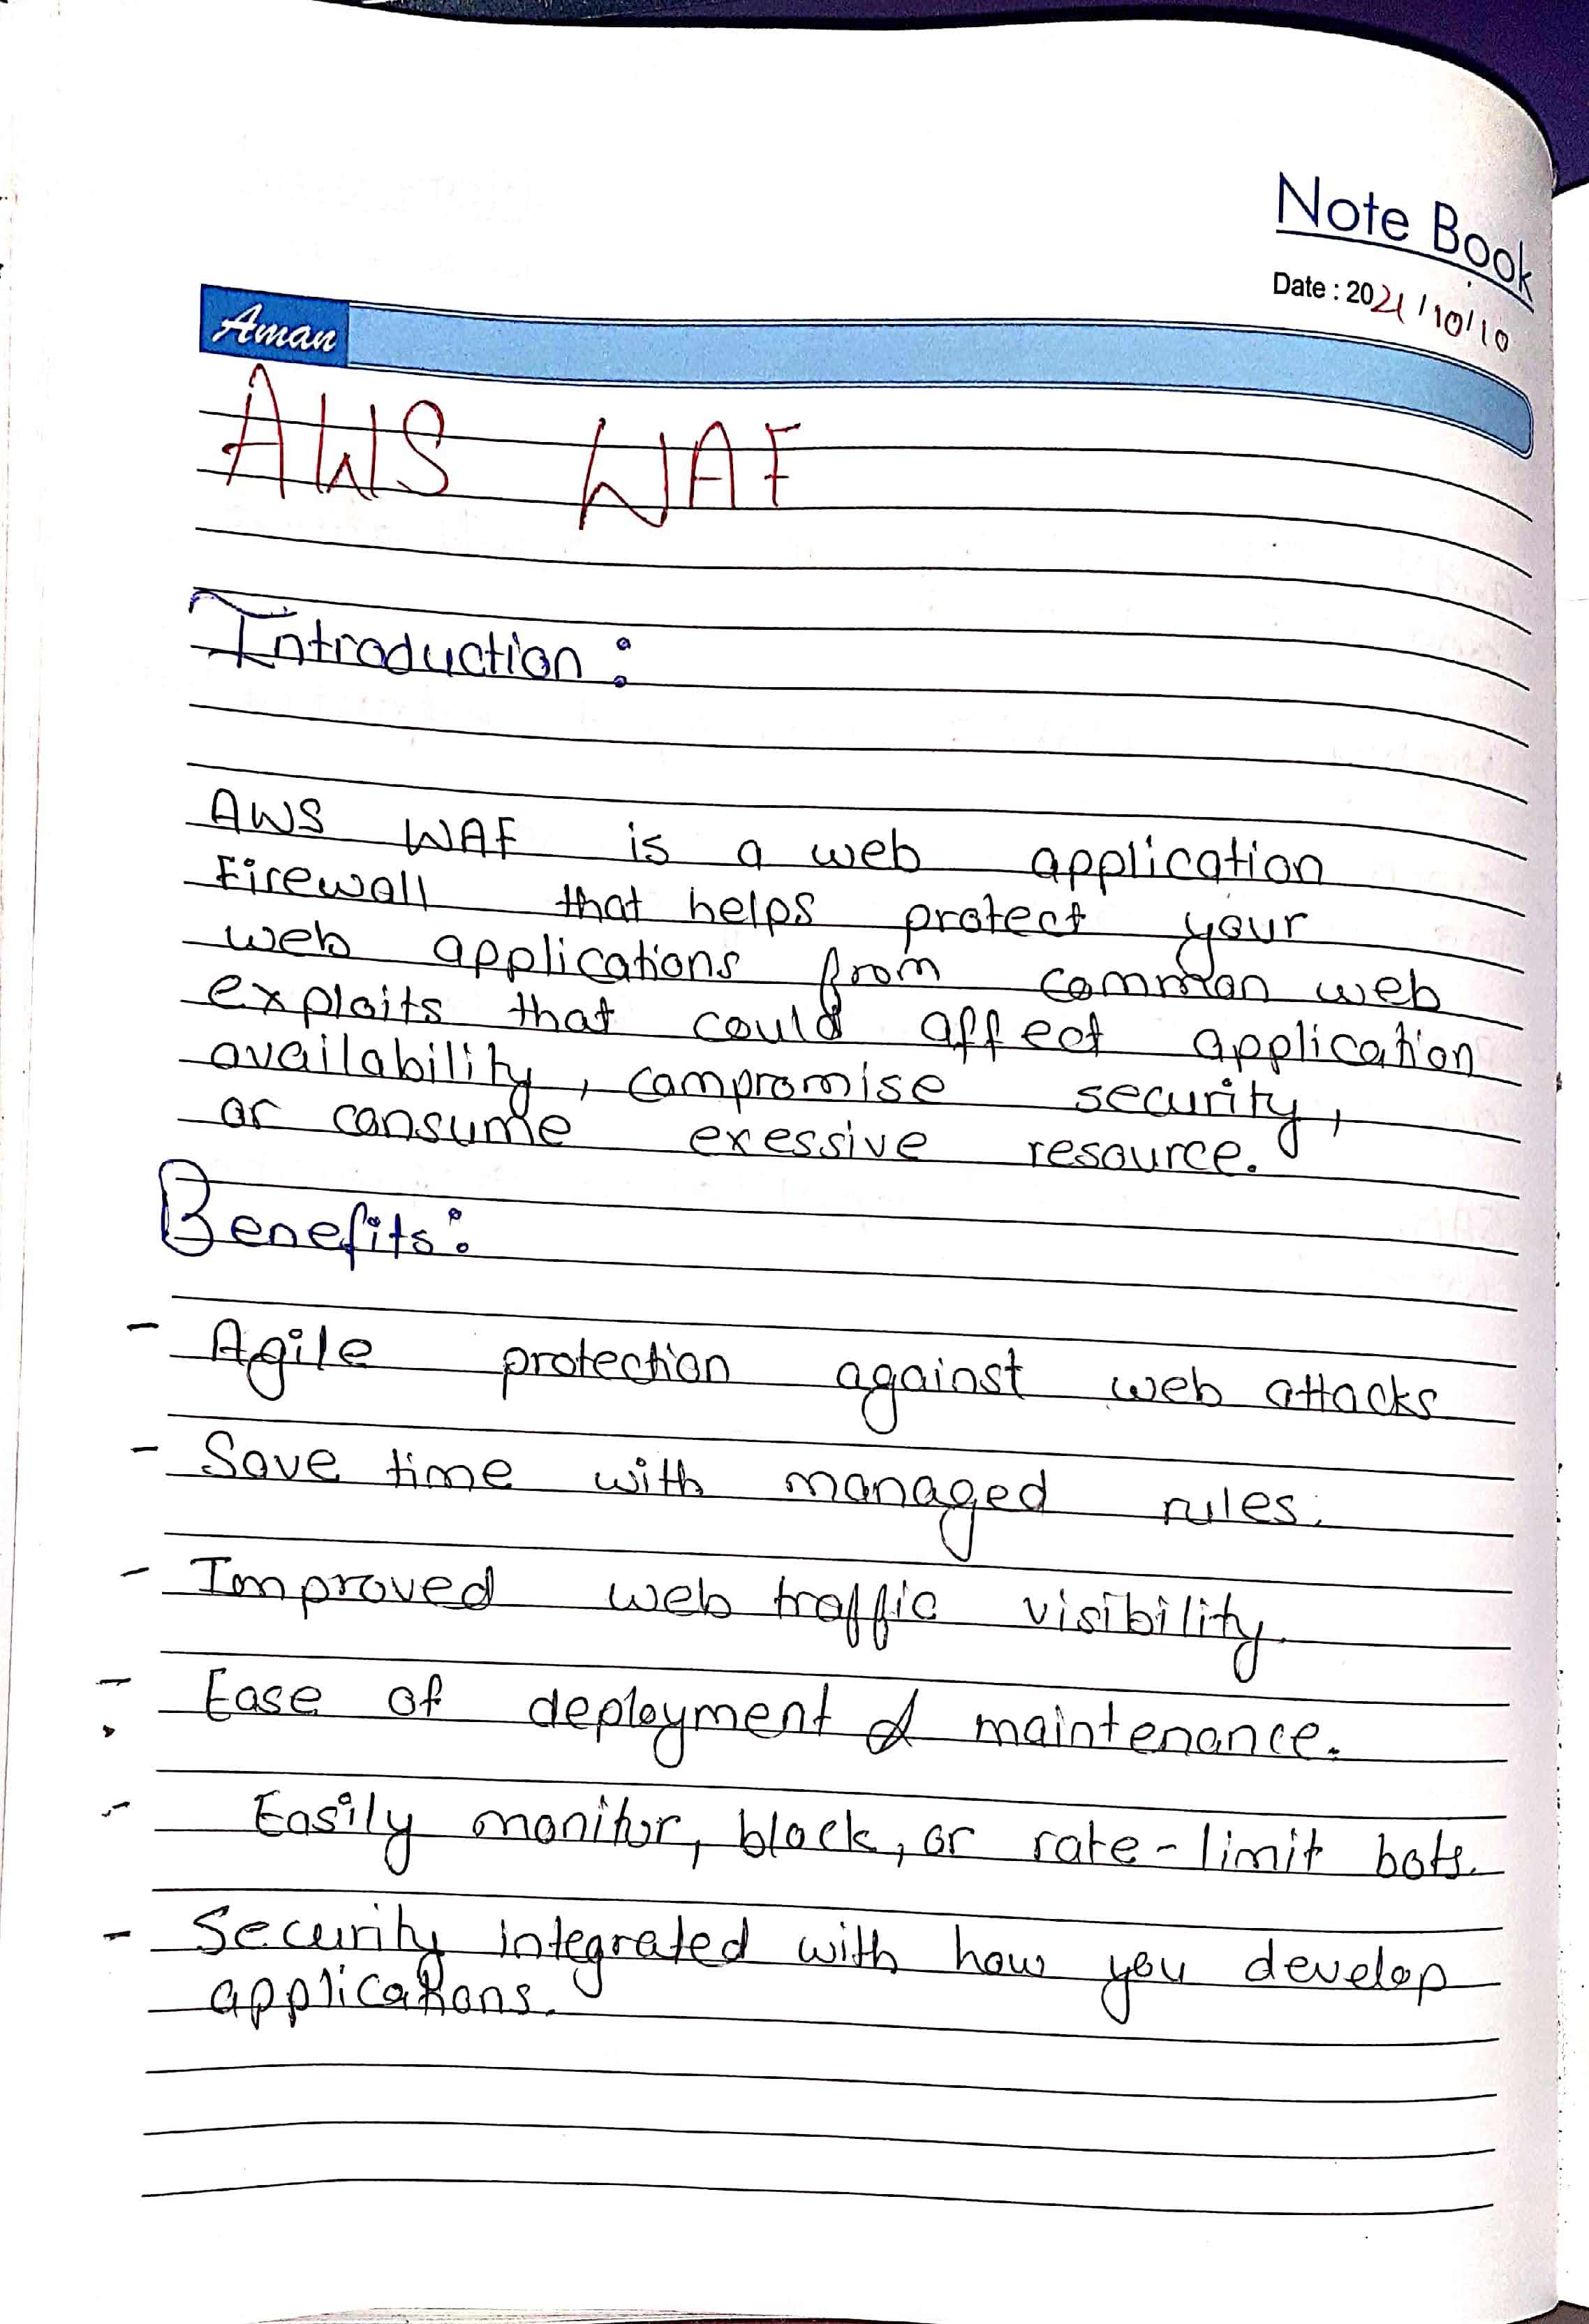 Note Book
Date : 2021/10/10
Aman
AWS WAF
Introduction:
AWS WAF is a web application
Firewall that helps protect your
web applications from common web
exploits that could affect application
availability, compromise security,
or consume exessive resource.
Benefits:
- Agile protection against web attacks
- Save time with managed rules.
- Improved web traffic visibility.
- Ease of deployment & maintenance.
- Easily monitor, block, or rate-limit bots.
- Security integrated with how you develop
applications.